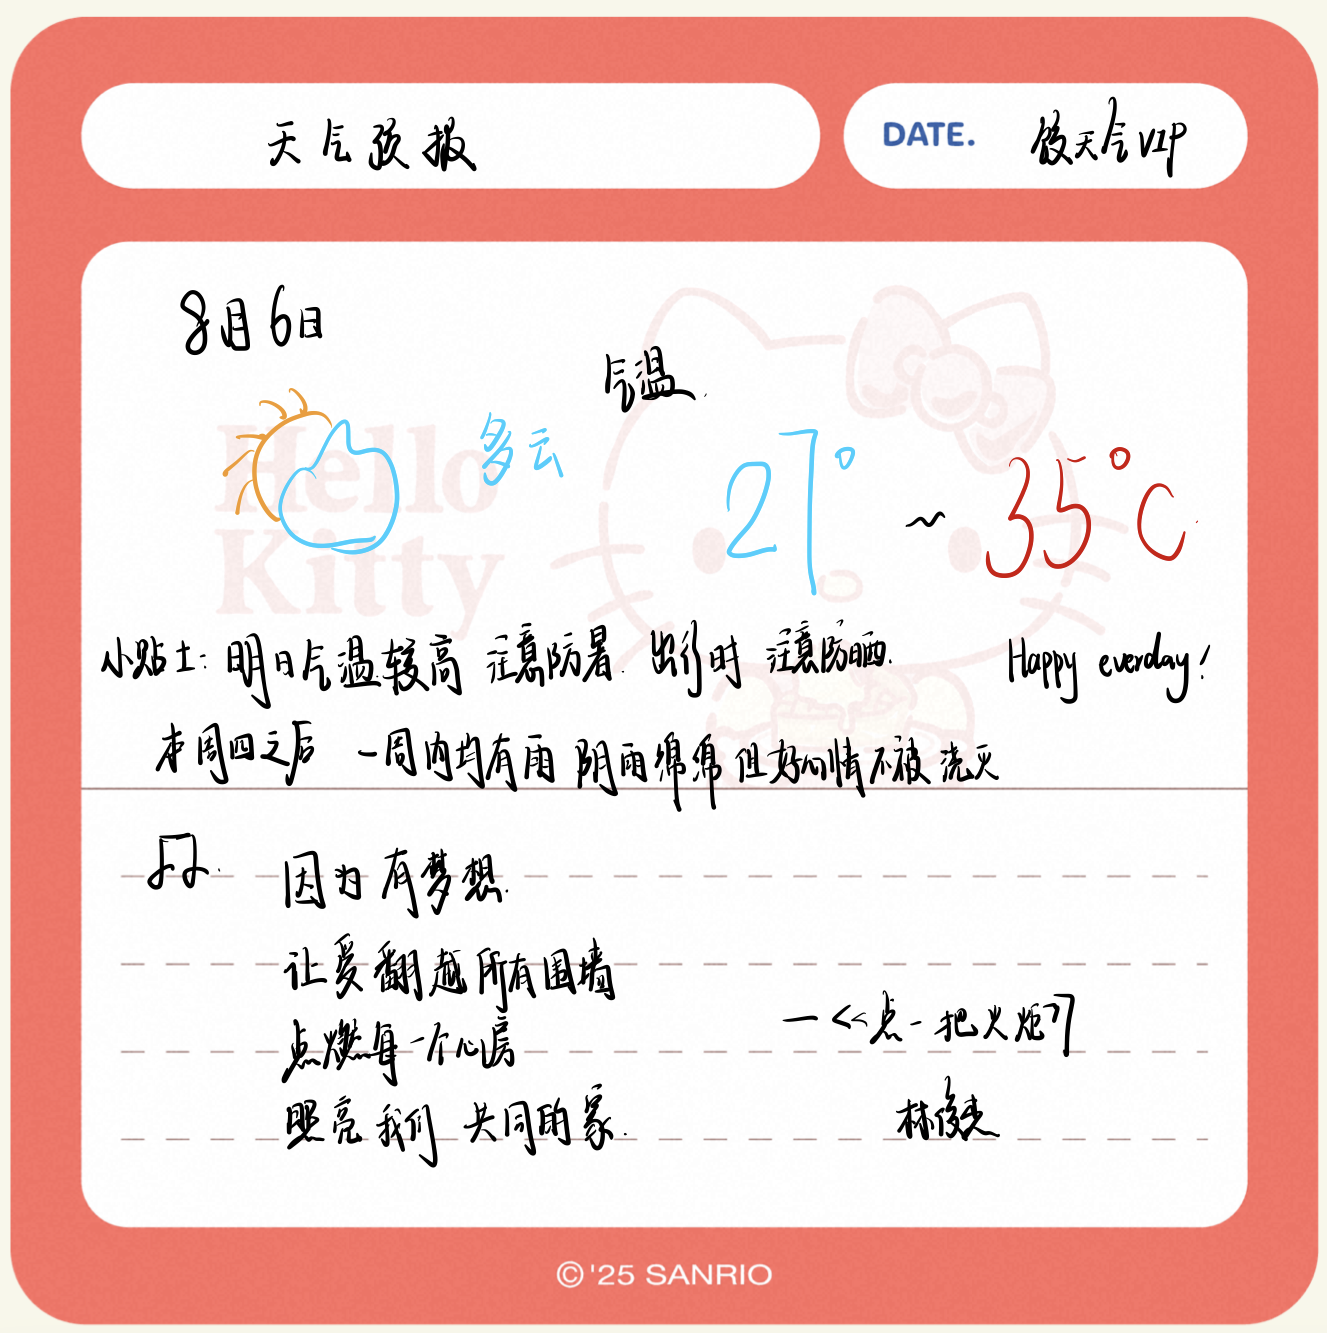 天气预报
DATE. 饺天气VIP
8月6日
气温
Hello
Kitty
多云
27° ~ 35°C
小贴士: 明日气温较高 注意防暑. 出行时 注意防晒. Happy everday!
本周四之后 一周内均有雨 阴雨绵绵 但好心情不被浇灭
因为有梦想.
让爱翻越所有围墙
点燃每一个心房
照亮我们 共同的家.
—《点一把火炬》
林俊杰
©'25 SANRIO